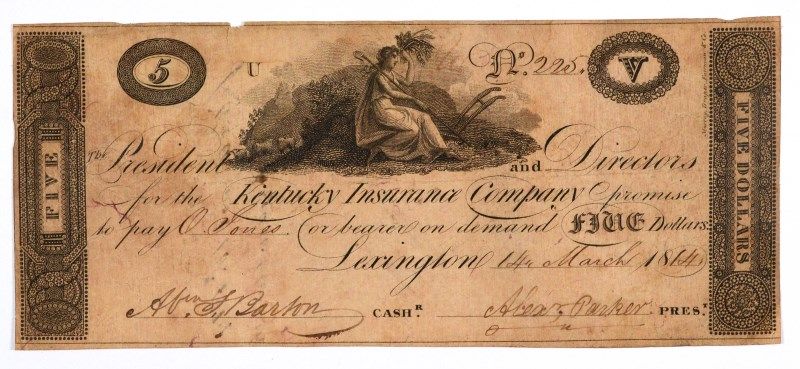 5
U
Nº. 225.
V
FIVE
FIVE DOLLARS
The President and Directors
for the Kentucky Insurance Company promise
to pay O. Jones. or bearer on demand FIVE Dollars.
Lexington 14 March 1814
Abm. S. Barton CASH.R Alexr. Parker PRES.T